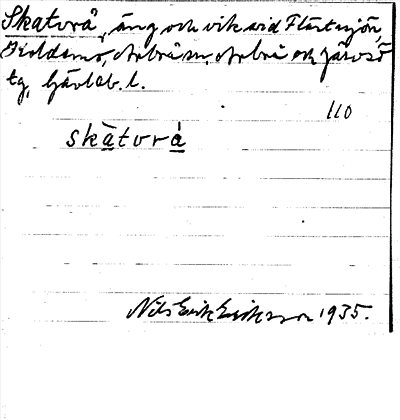 Skatvrå, äng och vik vid Flästasjön,
Arbrå sn, Arbrå och Järvsö
tg, Gävleb. l.
110
skàtvrá
Nils Erik Eriksson 1935.